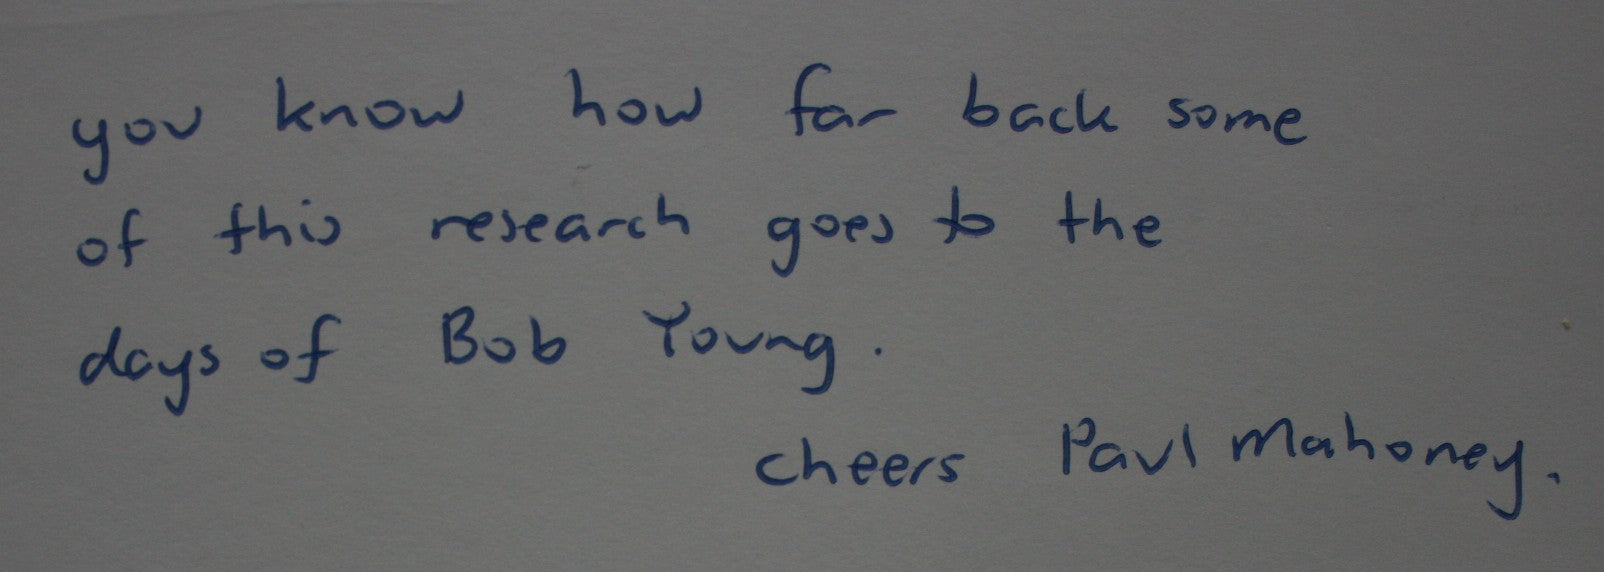 you know how far back some
of this research goes to the
days of Bob Young.
cheers Paul Mahoney.